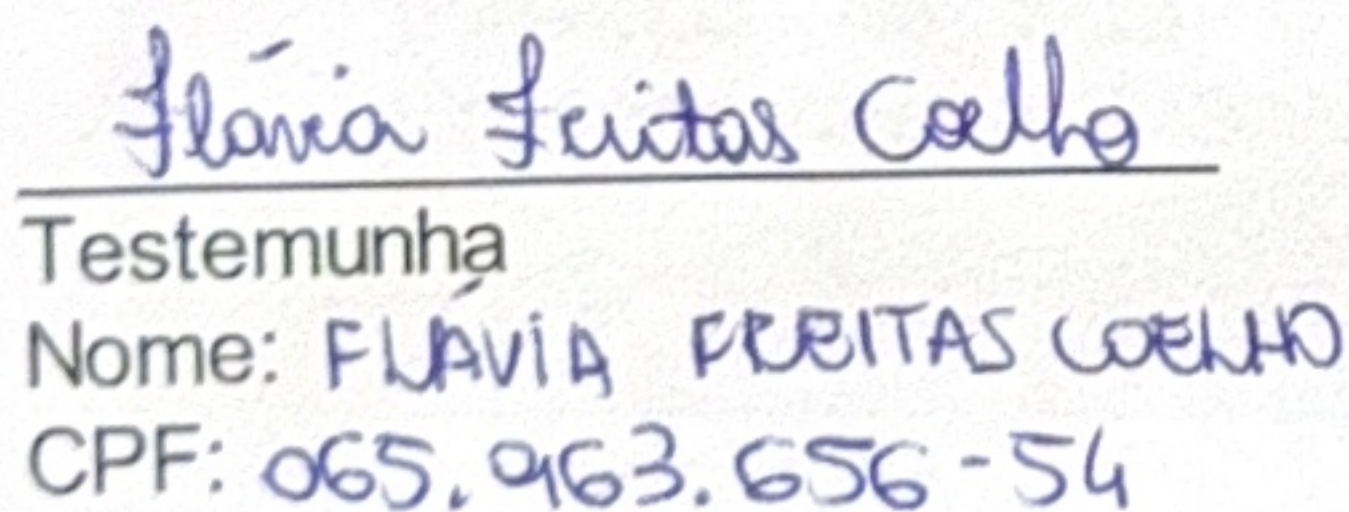 Flávia Freitas Coelho
Testemunha
Nome: FLÁVIA FREITAS COELHO
CPF: 065.963.656-54